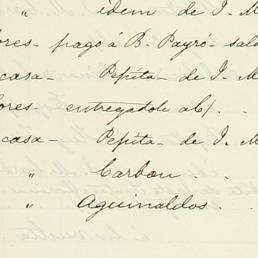 " idem de J. M
ores- pagó á B. Payró- sal
casa- Pepita- de J. M
ores- entregadole a/c/.
casa- Pepita- de J. M
" Carbon
" Aguinaldos.